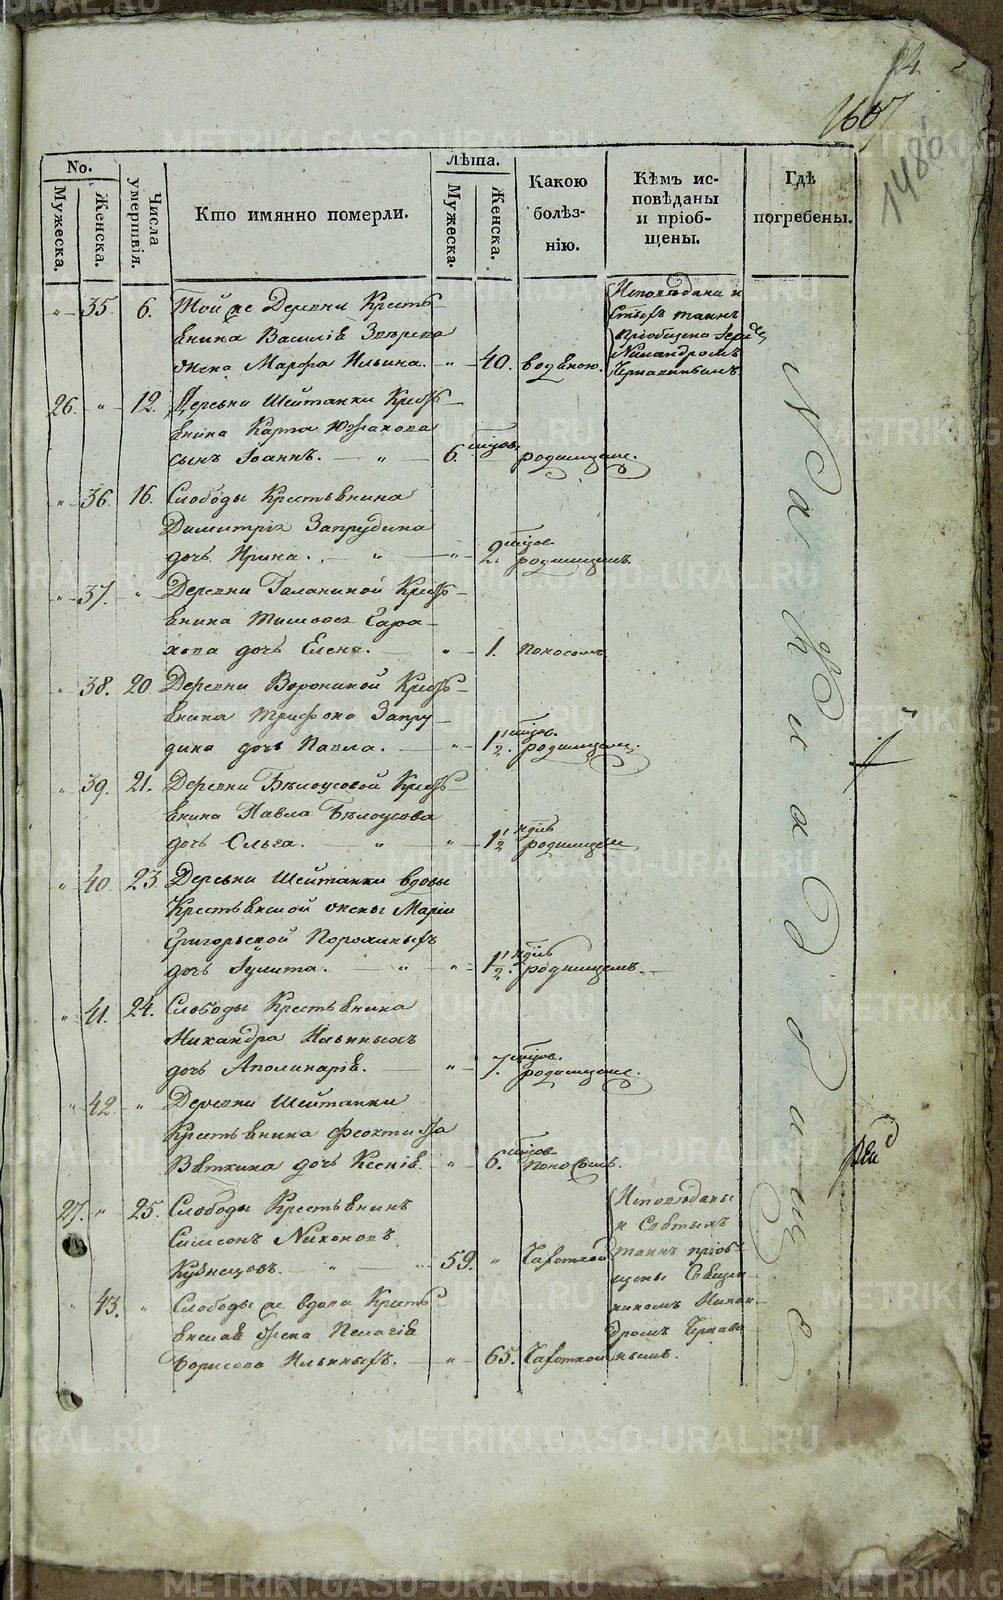 24
1607
1486
No.
Мужеска.
Женска.
Числа умертвія.
Кто имянно померли.
Лѣта.
Мужеска.
Женска.
Какою болѣз-
нію.
Кѣмъ ис-
повѣданы
и пріоб-
щены.
Гдѣ
погребены.
" 35. 6. Той же Деревни Кресть-
янина Василія Звѣрева
жена Марфа Ильина. " 40. водяною.
Исповѣдана и
Стыхъ таинъ
пріобщена
Никандромъ
26. " 12. Деревни Шейтанки Кресть-
янина Карпа Южакова
сынъ Іоаннъ. " 6. мцов. родимцемъ.
" 36. 16. Слободы Крестьянина
Димитрія Запрудина
дочь Ирина. " " 2. мцов. родимцемъ.
" 37. " Деревни Галаниной Кресть-
янина
дочь Елена. " 1. поносомъ
" 38. 20 Деревни Ворониной Кресть-
янина Трифона Запру-
дина дочь Павла. " 1½. мцов. родимцем.
" 39. 21. Деревни Бѣлоусовой Кресть-
янина Павла Бѣлоусова
дочь Ольга. " " 1½ ндль родимцем
" 40. 23. Деревни Шейтанки вдовы
Крестьянской жены Маріи
Григорьевой
дочь Іулита. " " 1½. ндль родимцемъ.
" 41. 24. Слободы Крестьянина
Никандра Ильиныхъ
дочь Аполинарія. " 7. мцов. родимцемъ.
" 42. " Деревни Шейтанки
Крестьянина Феоктиста
Вяткина дочь Ксенія. " 6. мцов. поносомъ.
27. " 25. Слободы Крестьянинъ
Симеонъ Никоновъ
Кузнецовъ. " " 59. " Чахоткой
Исповѣданы
и Святыхъ
таинъ пріоб-
щены Священ-
никомъ Никан-
дромъ
" 43. " Слободы же вдова Кресть-
янская жена Пелагія
Борисова Ильиныхъ. " 65. Чахоткой
На кладбище